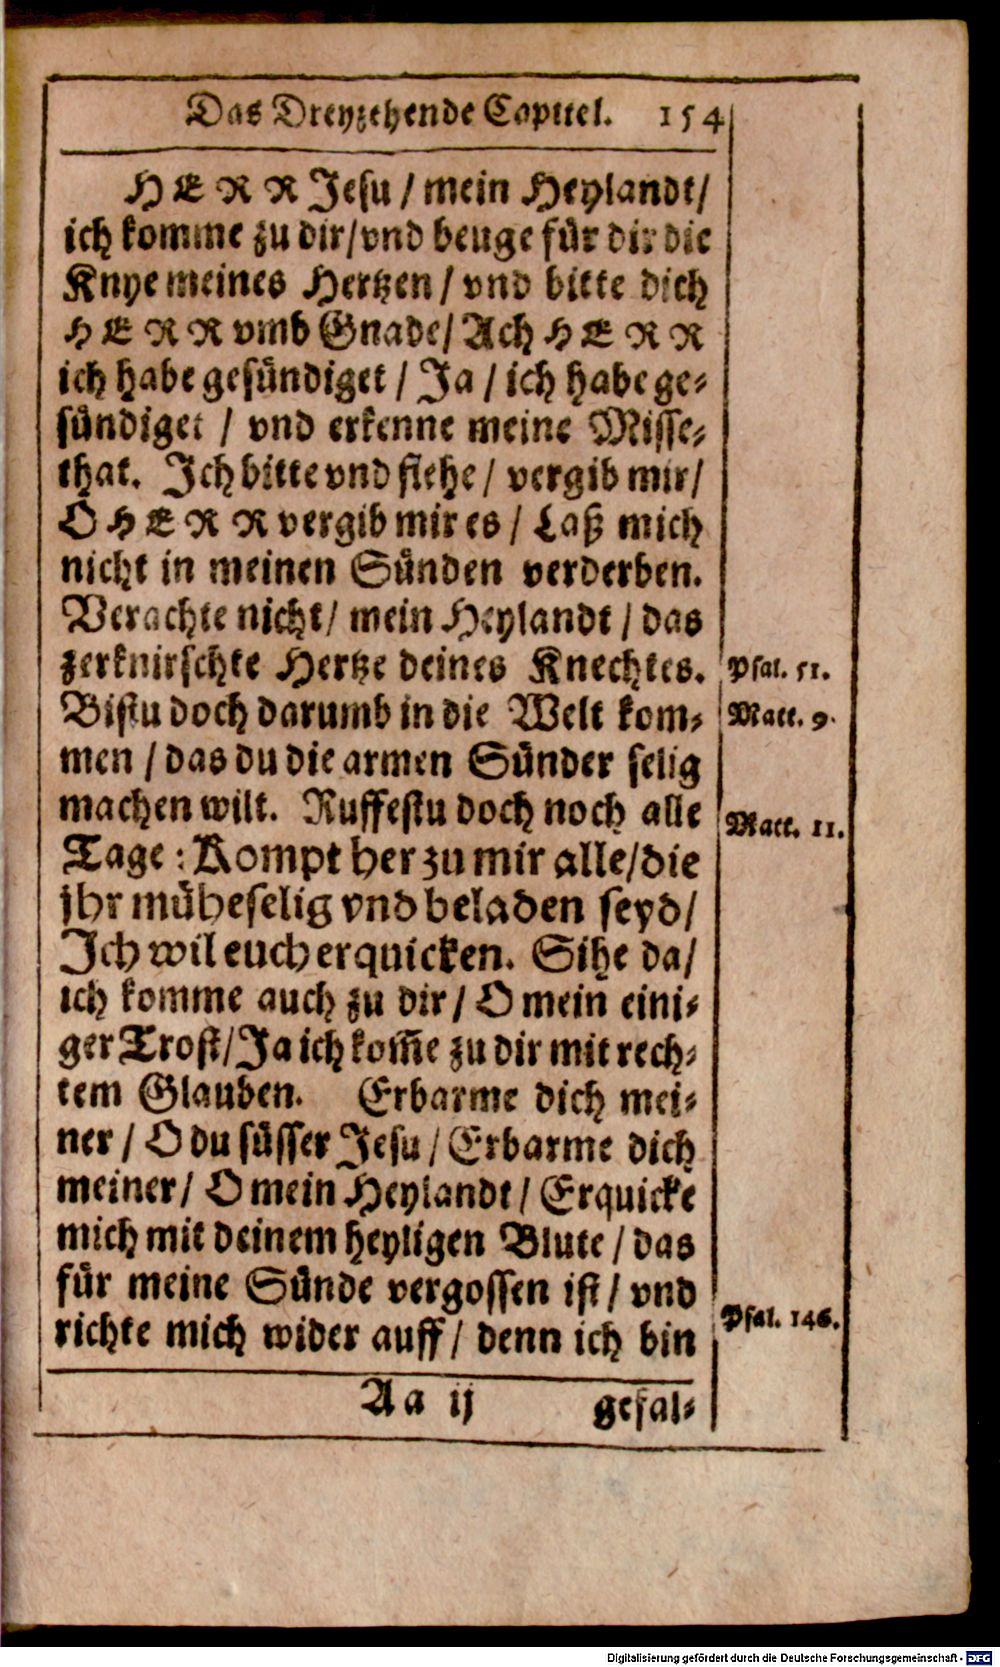 Das Dreyzehende Capittel. 154
HERR Jesu / mein Heylandt/
ich komme zu dir/vnd beuge für dir die
Knye meines Hertzen / vnd bitte dich
HERR vmb Gnade/ Ach HERR
ich habe gesündiget / Ja / ich habe ge-
sündiget / vnd erkenne meine Misse-
that. Ich bitte vnd flehe / vergib mir/
O HERR vergib mir es / Laß mich
nicht in meinen Sünden verderben.
Verachte nicht/ mein Heylandt / das
zerknirschte Hertze deines Knechtes.
Psal. 51.
Bistu doch darumb in die Welt kom-
Matt. 9.
men / das du die armen Sünder selig
machen wilt. Ruffestu doch noch alle
Matt. 11.
Tage : Kompt her zu mir alle/die
jhr müheselig vnd beladen seyd/
Ich wil euch erquicken. Sihe da/
ich komme auch zu dir / O mein eini-
ger Trost/Ja ich kom̃e zu dir mit rech-
tem Glauben. Erbarme dich mei-
ner / O du süsser Jesu / Erbarme dich
meiner/ O mein Heylandt / Erquicke
mich mit deinem heyligen Blute / das
für meine Sünde vergossen ist / vnd
richte mich wider auff / denn ich bin
Psal. 146.
Aa ij gefal-
Digitalisierung gefördert durch die Deutsche Forschungsgemeinschaft - DFG